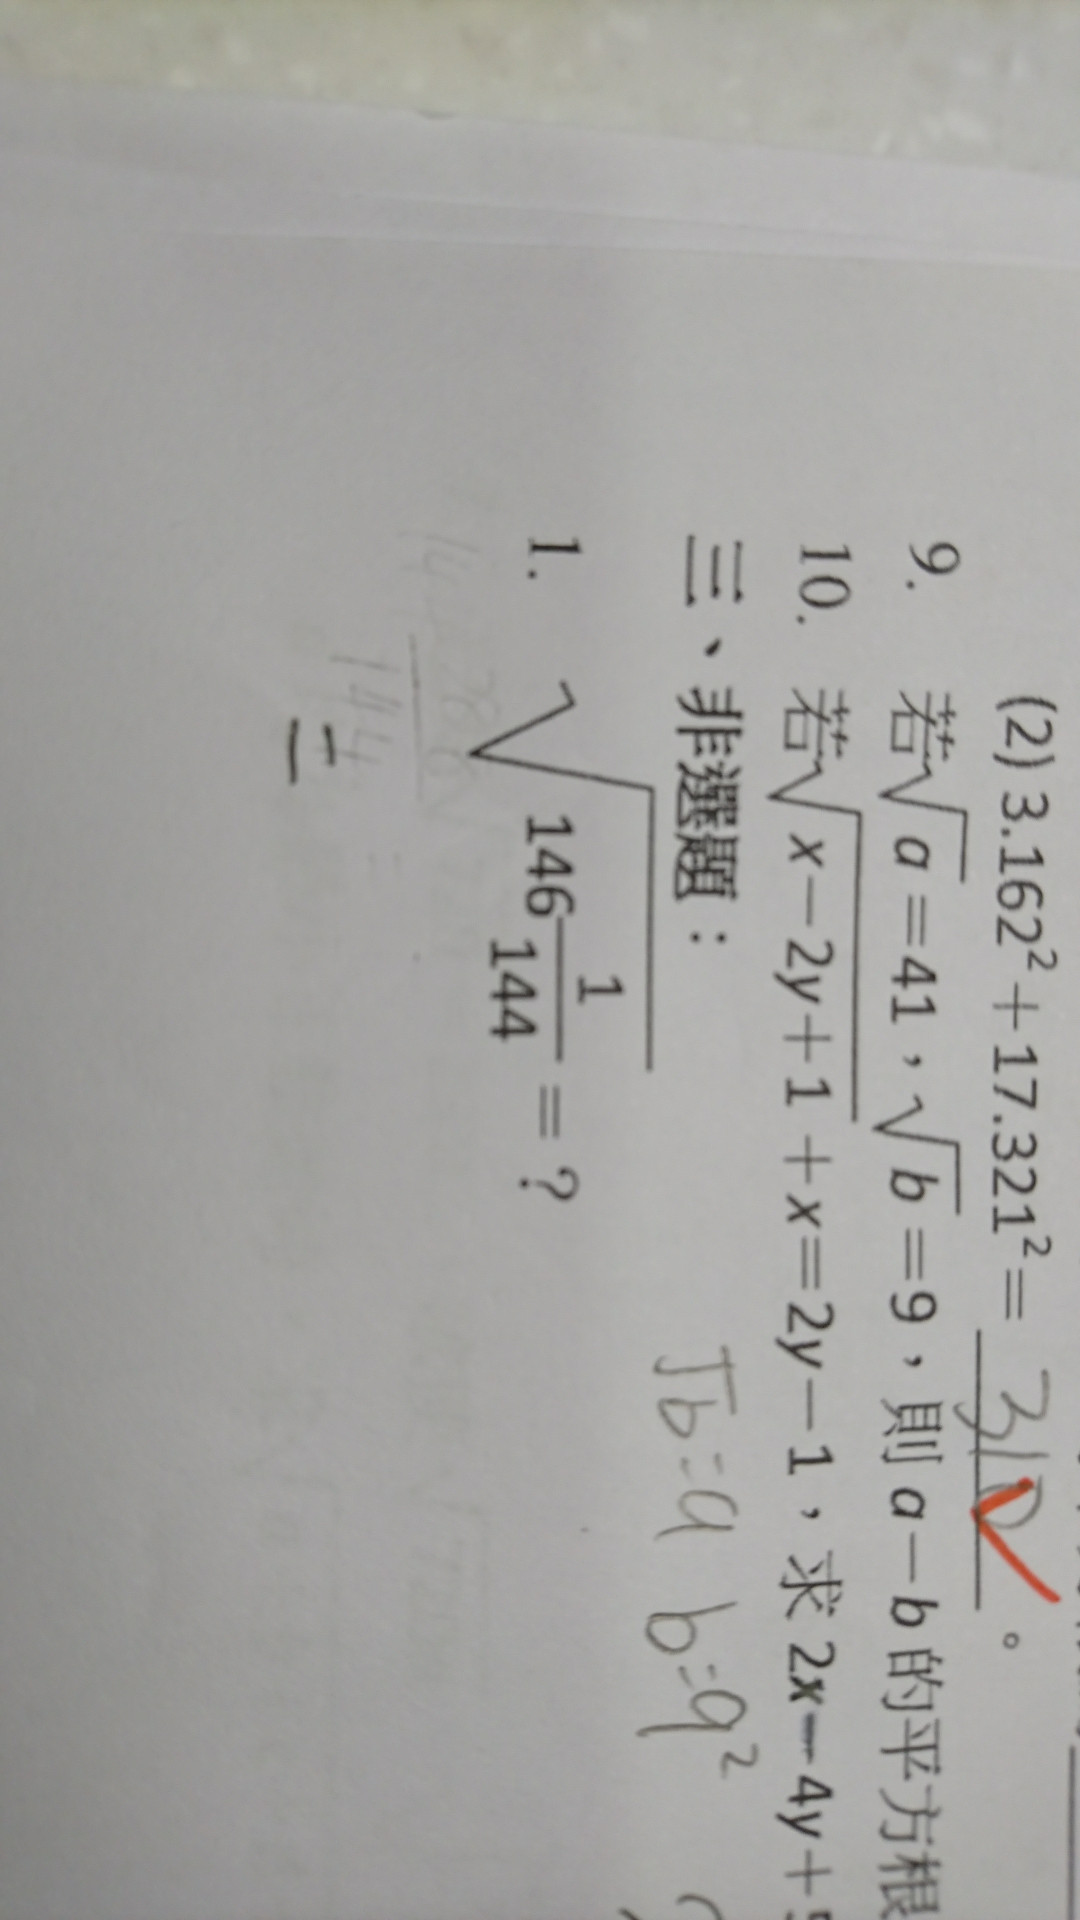 (2) 3.162² + 17.321² = 310 。
9. 若√a = 41，√b = 9，則 a − b 的平方根
10. 若√(x − 2y + 1) + x = 2y − 1，求 2x − 4y +
三、非選題：
√b = 9 b = 9²
1. √(146 1/144) = ?
144